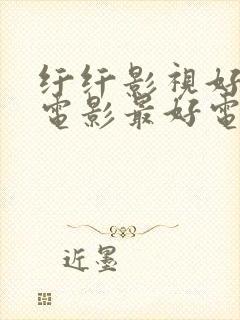 纤纤影視好
電影最好電
近墨